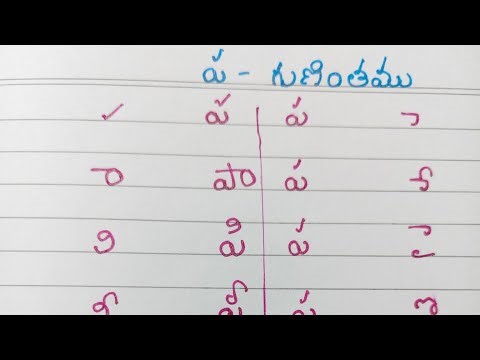 ప - గుణింతము
✓ ప ప ె
ా పా ప ే
ి పి ప ై
ీ పీ ప ొ